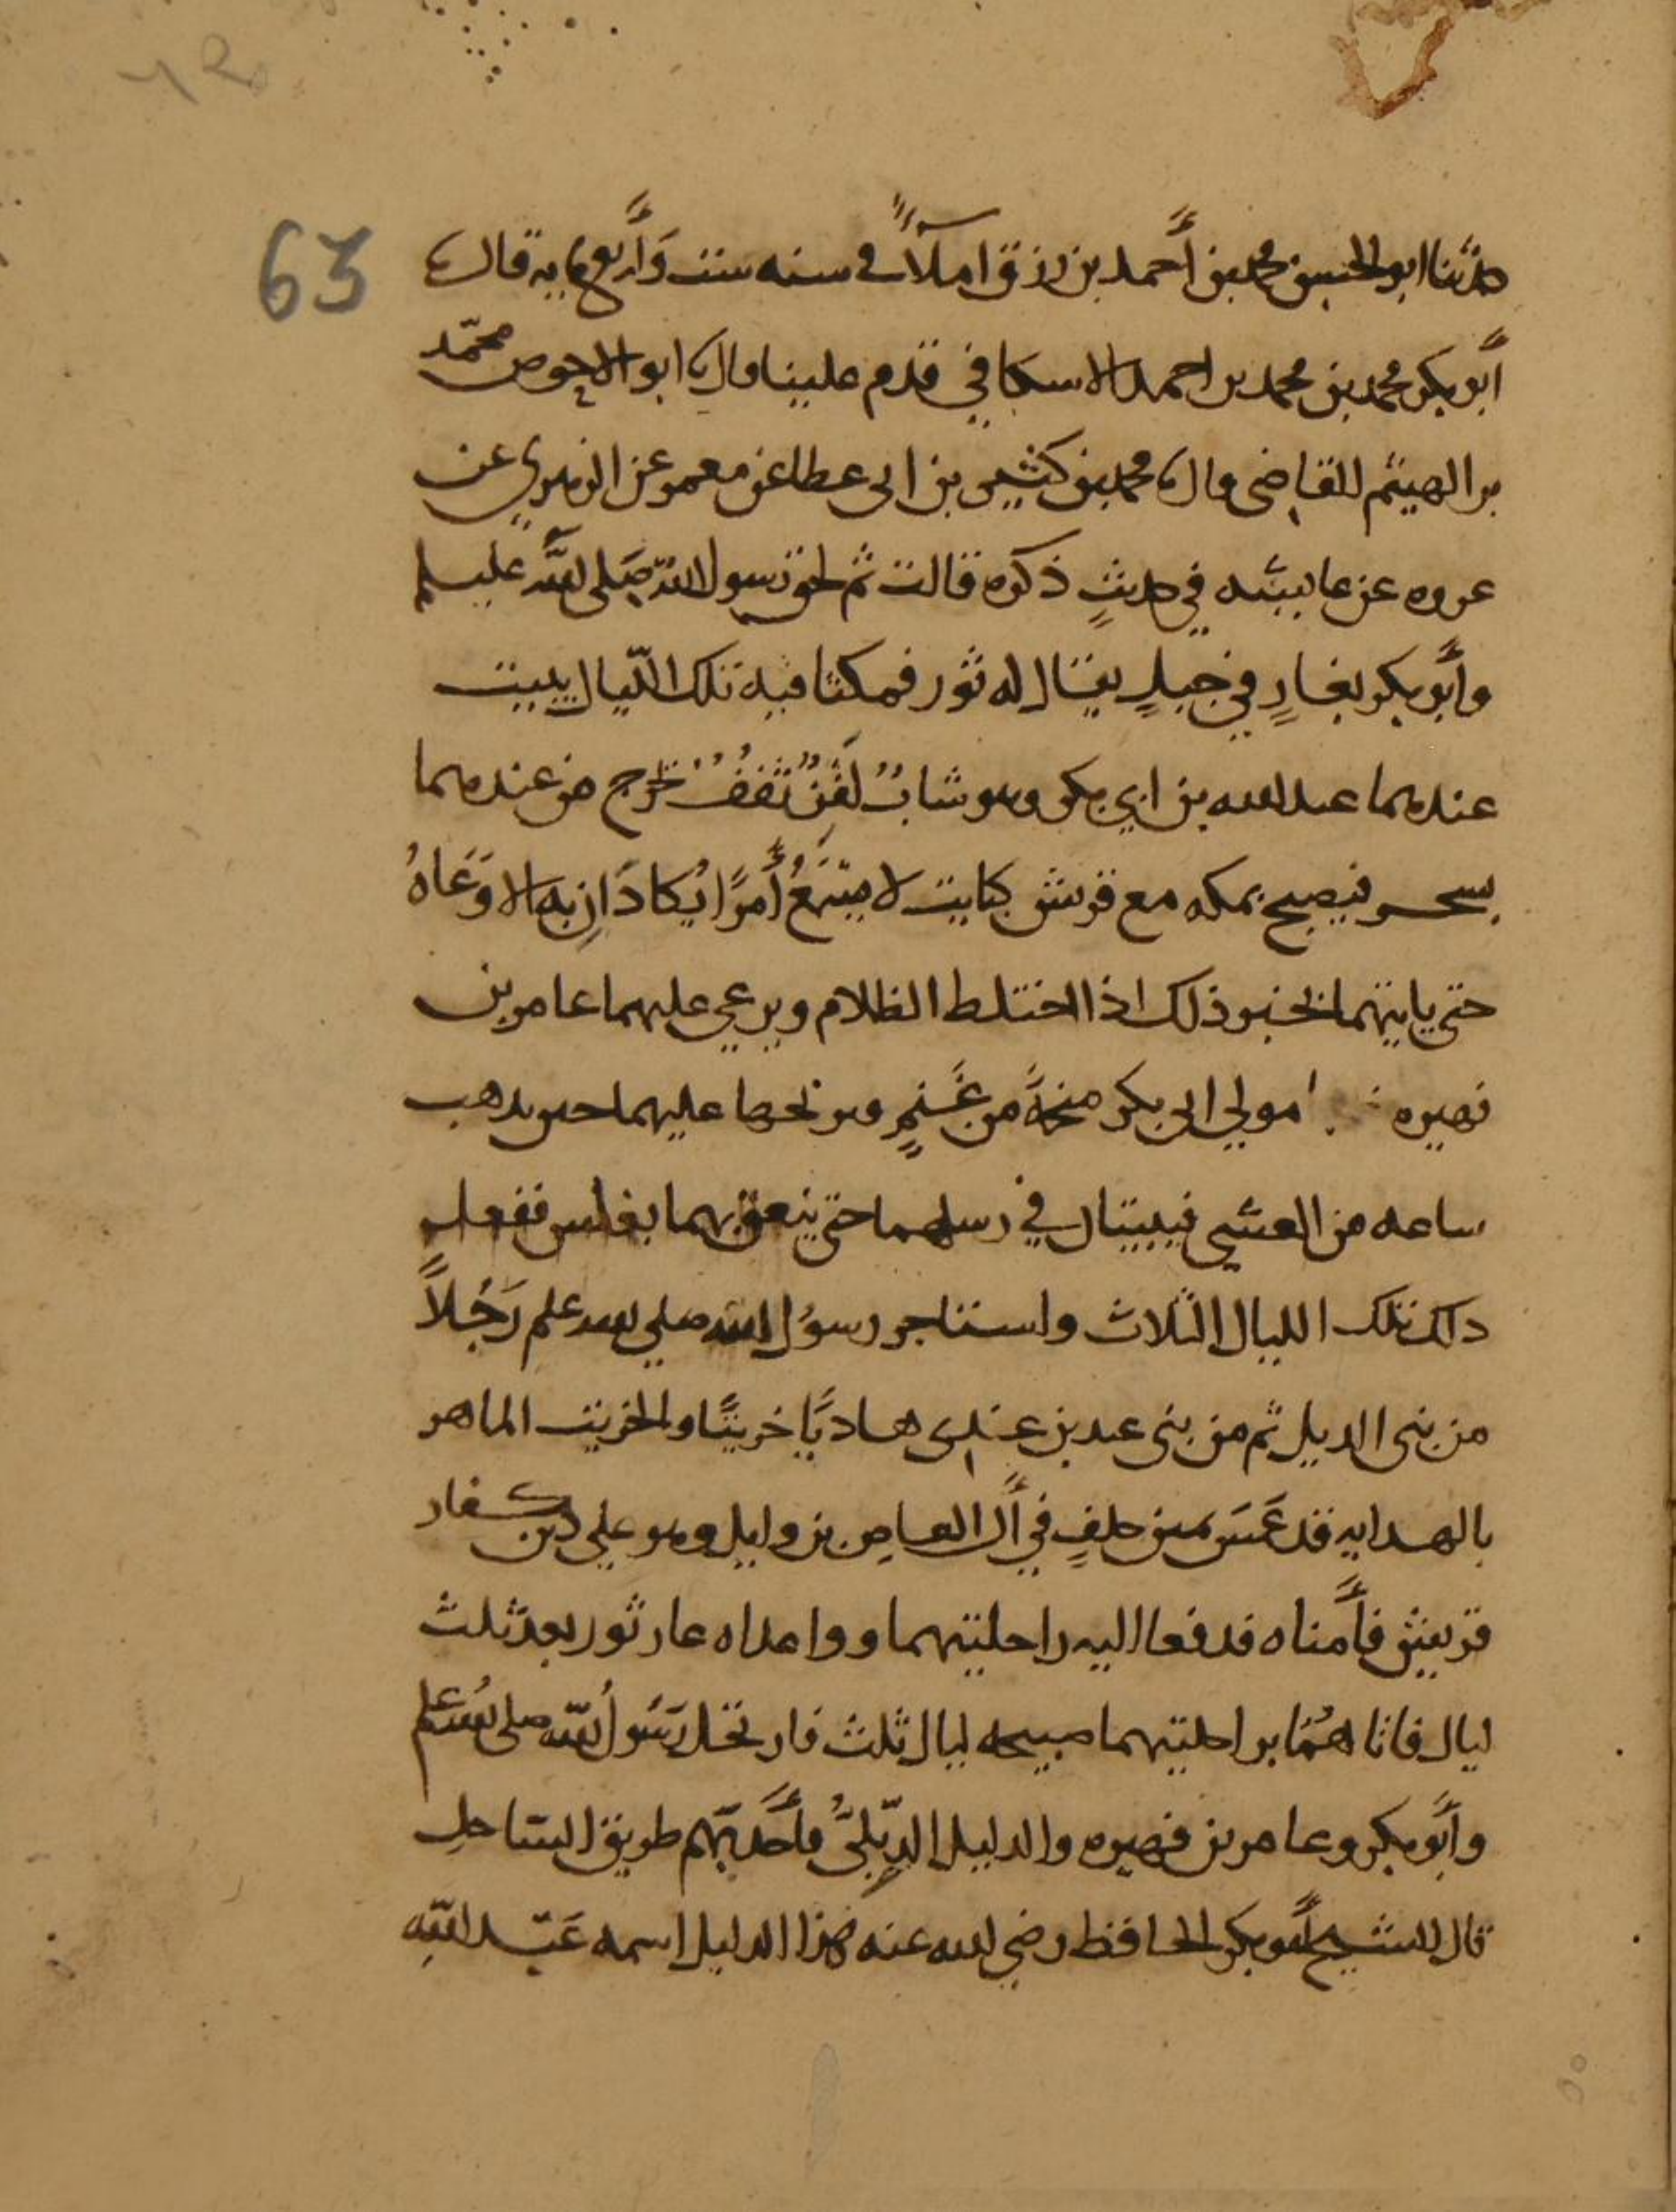 63
حدثنا ابو الحسين محمد بن أحمد بن رزق املآءً في سنه ست وأربع مايه قال
أبو بكر محمد بن محمد بن احمد الاسكافي قدم علينا قال ابو الاحوص محمّد
بن الهيثم القاضي قال محمد بن كثير بن ابى عطا عن معمر عن الزهري عن
عروه عن عاييشه في حديثٍ ذكره قالت ثم لحق رسول الله صَلى الله عليه وسلم
وأبو بكر بغارٍ في جبلٍ يقال له ثور فمكثا فيه تلك اللّيال يبيت
عندهما عبد الله بن ابي بكر وهو شابٌ لَقِنٌ ثَقِفٌ خرج من عندهما
بسحر فيصبح بمكه مع قريش كبايت لا يسمَعُ أمرًا يُكادَانِ به الا وَعَاهُ
حتى ياتيهما بخبر ذلك اذا اختلط الظلام ويرعي عليهما عامر بن
فهيره مولي ابى بكر منحةً من غَنمٍ ويريحها عليهما حين يذهب
ساعه من العشي فيبيتان في رسلهما حتى ينعق بهما بغلس ففعل
ذلك تلك الليال الثلاث واستاجر رسول الله صلي الله علم رَجُلاً
من بنى الديل ثم من بنى عبد بن عدي هاديًا خريتًا والخريت الماهر
بالهدايه قد غَمَسَ يمين حلفٍ في آل العاص بن وايل وهو علي دين كفار
قريش فأمناه فدفعا اليه راحلتيهما وواعداه غار ثور بعد ثلث
ليال فاتاهُمَا براحلتيهما صبيحه ليال ثلث فارتحل رَسُول الله صلى الله علم
وأبو بكر وعامر بن فهيره والدليل الدِّيلىُّ فأخذ بهم طريق الساحل
قال الشيخ أبو بكر الحافظ رضي الله عنه هذا الدليل اسمه عَبد الله